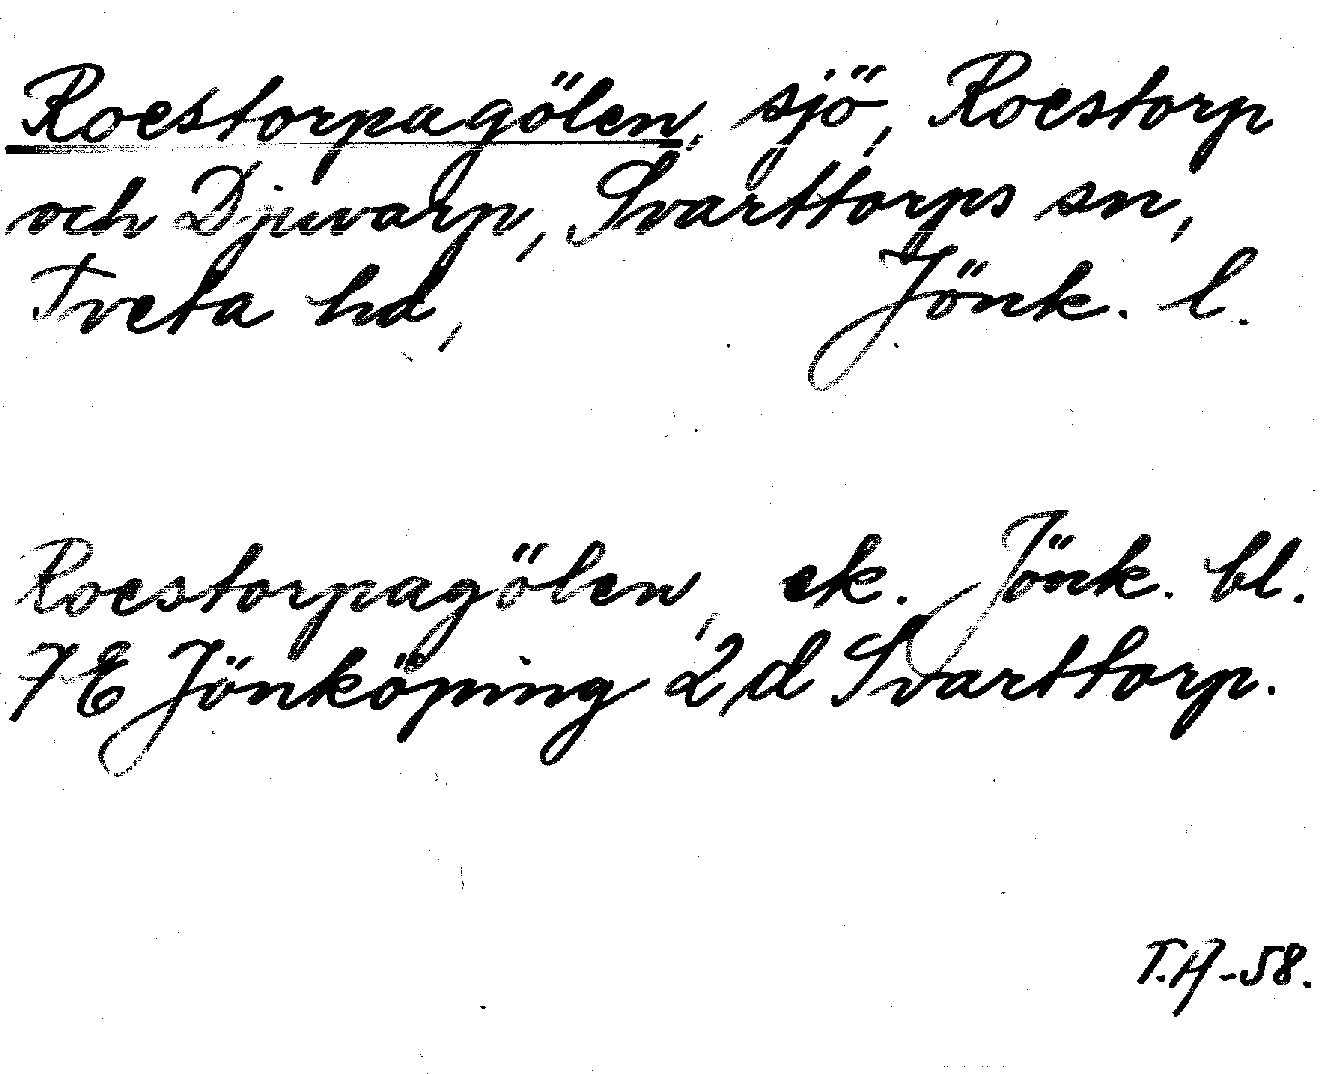 Roestorpagölen, sjö, Roestorp
och Djuvarp, Svarttorps sn,
Tveta hd, Jönk. l.
Roestorpagölen, ek. Jönk. bl.
7E Jönköping 2d Svarttorp.
T.A-58.